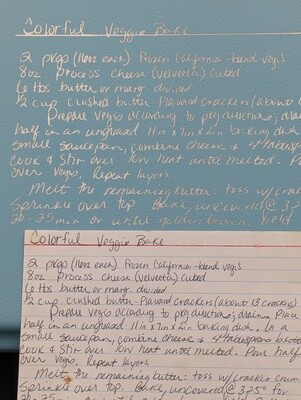 Colorful Veggie Bake
2 pkgs (16oz each) frozen California-blend vegis
8oz process cheese (velveeta) cubed
6 tbs butter or marg. divided
1/2 cup crushed butter flavored crackers (about 1
Prepare vegis according to pkg directions; drain. Place
half in an ungreased 11in x 7in x 2in baking dish. In a
small saucepan, combine cheese & 4 tablespoons
cook & stir over low heat until melted. Pour
over vegs. Repeat layers.
Melt the remaining butter: toss w/ cracker
Sprinkle over top. Bake, uncovered @ 375°
20-25 min or until golden brown. Yield
Colorful Veggie Bake
2 pkgs (16oz each) frozen California-blend vegis
8oz process cheese (velveeta) cubed
6 tbs butter or marg. divided
1/2 cup crushed butter-flavored crackers (about 13 crackers)
Prepare vegis according to pkg directions; drain. Place
half in an ungreased 11in x 7in x 2in baking dish. In a
small saucepan, combine cheese & 4 tablespoons butter
cook & stir over low heat until melted. Pour half
over vegs. Repeat layers.
Melt the remaining butter: toss w/ cracker crumbs
Sprinkle over top. Bake, uncovered @ 375° for
20-25